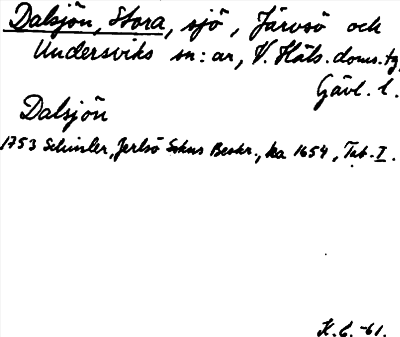 Dalsjön, Stora, sjö, Järvsö och
Undersviks sn:ar, V. Häls. doms.tg.
Gävl. l.
Dalsjön
1753 Schissler, Jerlsö Sokns Beskr., ka 1654, Tab. I.
K.G. -61.